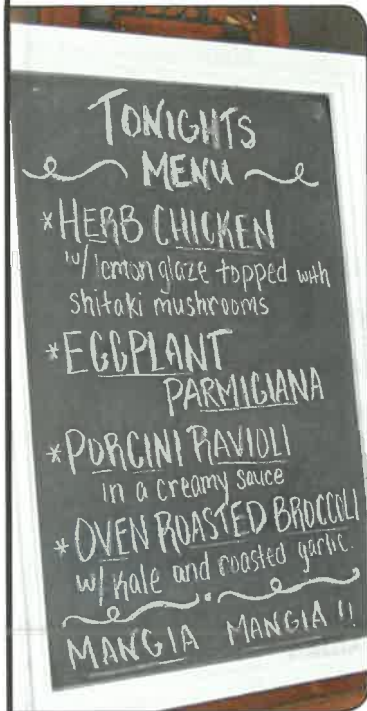 TONIGHTS
MENU
*HERB CHICKEN
w/ lemon glaze topped with
shitaki mushrooms
*EGGPLANT
PARMIGIANA
*PORCINI RAVIOLI
in a creamy sauce
*OVEN ROASTED BROCCOLI
w/ kale and roasted garlic.
MANGIA MANGIA !!